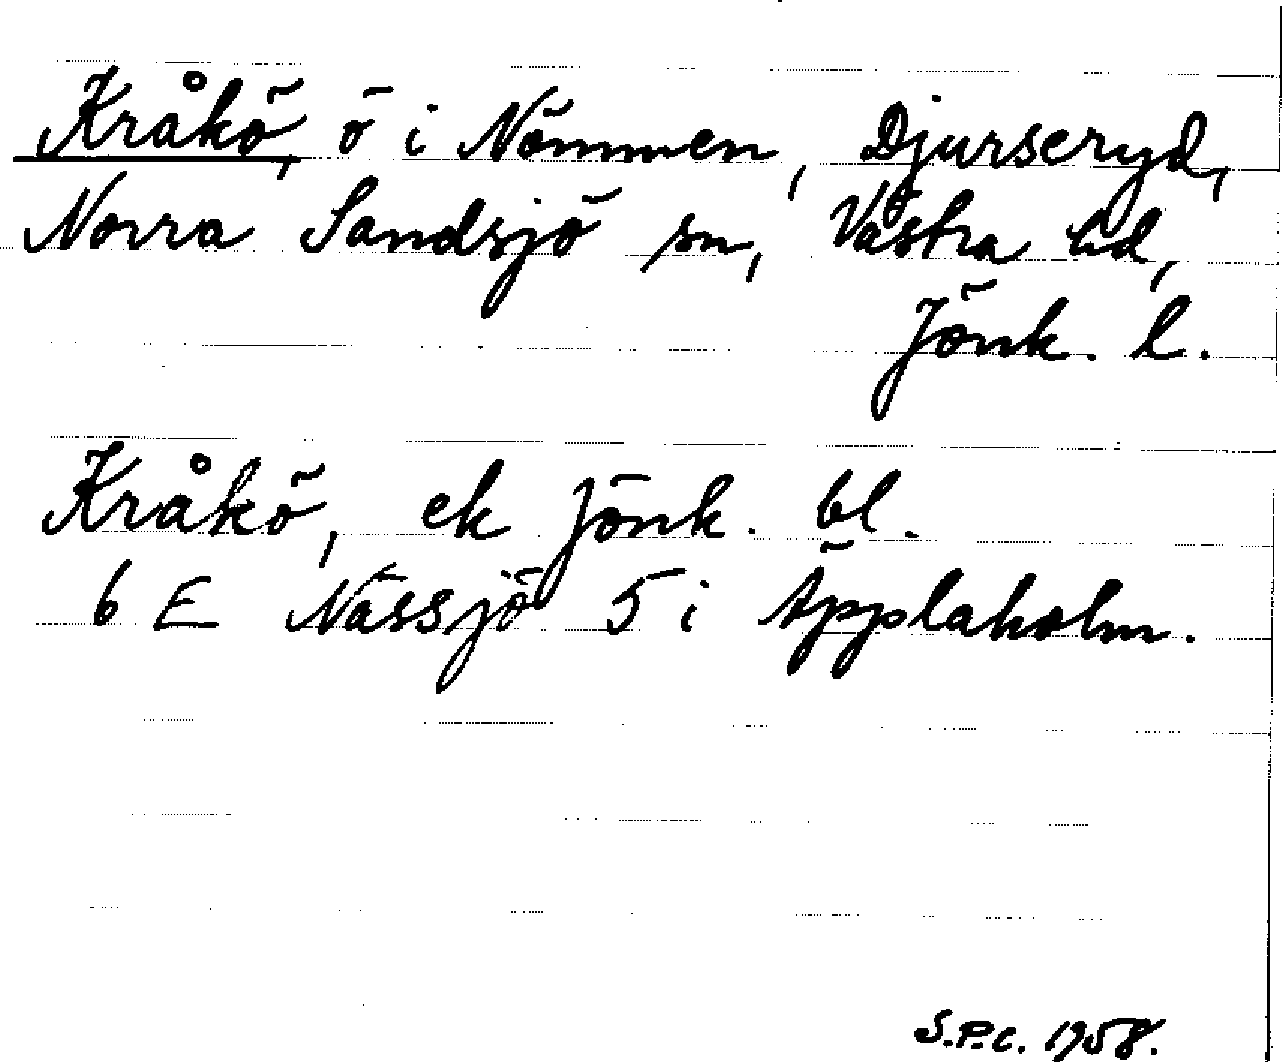 Kråkö, ö i Nömmen, Djurseryd,
Norra Sandsjö sn, Västra hd,
Jönk. l.
Kråkö, ek Jönk. bl.
6 E Nässjö 5 i Äpplaholm.
S.P.C. 1958.